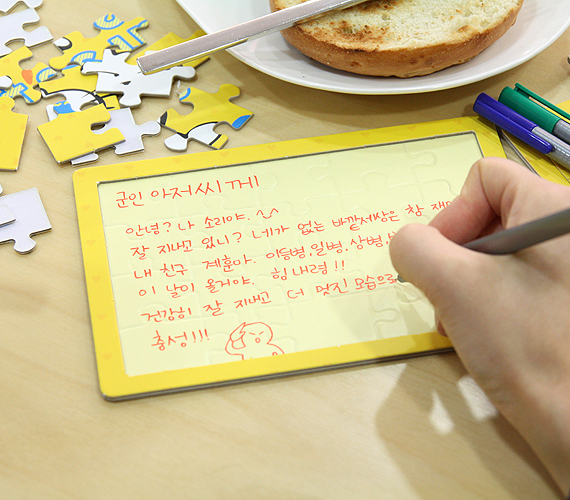 군인 아저씨께
안녕? 나 소리야.
잘 지내고 있니? 네가 없는 바깥세상은 참
내 친구 계훈아. 이등병, 일병, 상병,
이 날이 올거야. 힘내렴!!
건강히 잘 지내고 더 멋진 모습으로
충성!!!